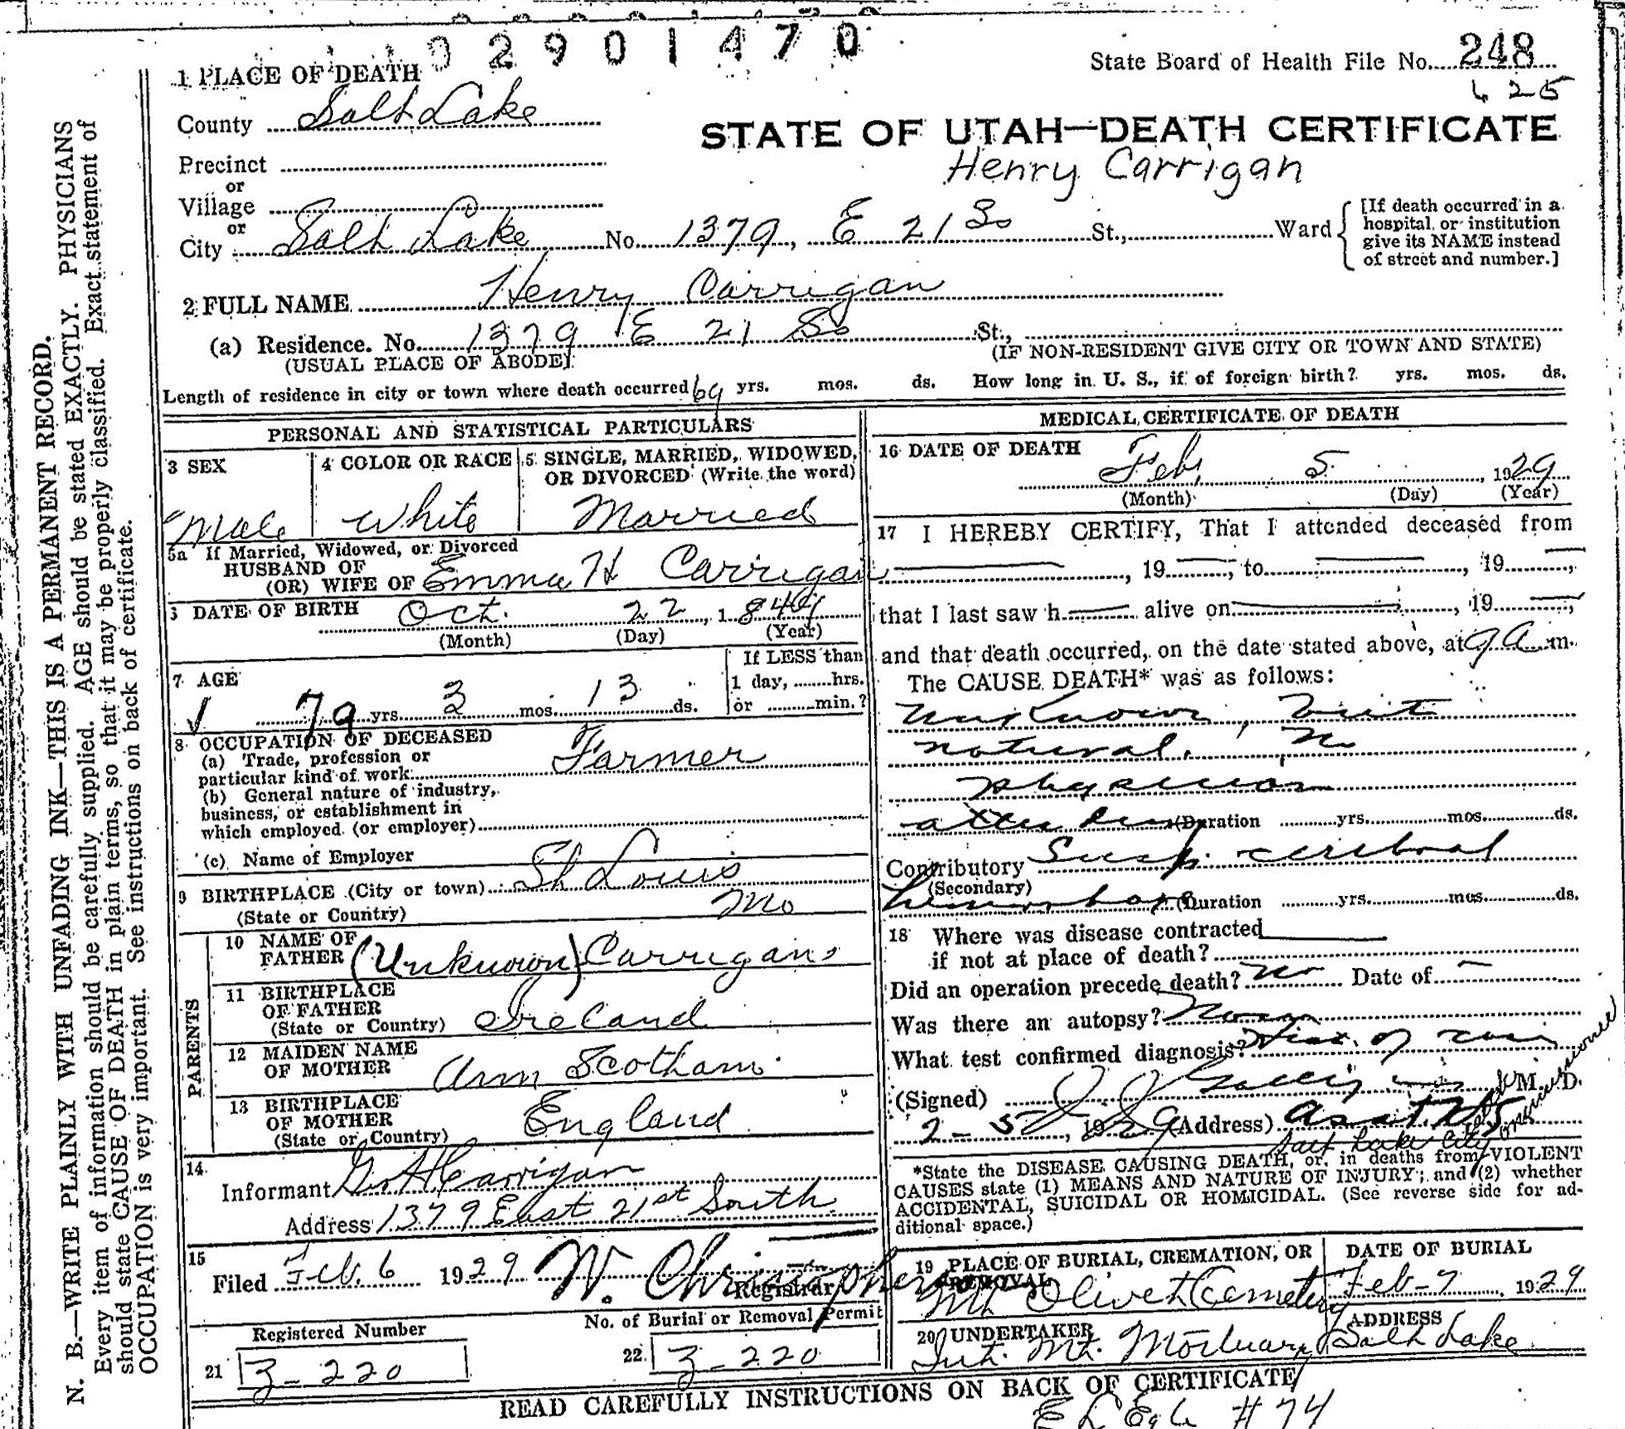 02901470
State Board of Health File No. 248
625
1 PLACE OF DEATH
County Salt Lake
STATE OF UTAH—DEATH CERTIFICATE
Henry Carrigan
Precinct
or
Village
or
City Salt Lake No. 1379, E 21 So St., Ward
[If death occurred in a
hospital or institution
give its NAME instead
of street and number.]
2 FULL NAME Henry Carrigan
(a) Residence. No. 1379 E 21 So St.,
(USUAL PLACE OF ABODE)
(IF NON-RESIDENT GIVE CITY OR TOWN AND STATE)
Length of residence in city or town where death occurred 69 yrs. mos. ds. How long in U. S., if of foreign birth? yrs. mos. ds.
PERSONAL AND STATISTICAL PARTICULARS
3 SEX
Male
4 COLOR OR RACE
White
5 SINGLE, MARRIED, WIDOWED,
OR DIVORCED (Write the word)
Married
5a If Married, Widowed, or Divorced
HUSBAND OF
(OR) WIFE OF Emma H Carrigan
6 DATE OF BIRTH Oct. 22, 1849
(Month) (Day) (Year)
7 AGE
79 yrs 3 mos. 13 ds.
If LESS than
1 day, ......hrs.
or ......min.?
8 OCCUPATION OF DECEASED
(a) Trade, profession or
particular kind of work Farmer
(b) General nature of industry,
business, or establishment in
which employed (or employer)
(c) Name of Employer
9 BIRTHPLACE (City or town) St Louis
(State or Country) Mo
PARENTS
10 NAME OF
FATHER (Unknown) Carrigan
11 BIRTHPLACE
OF FATHER
(State or Country) Ireland
12 MAIDEN NAME
OF MOTHER Ann Scotham
13 BIRTHPLACE
OF MOTHER
(State or Country) England
14
Informant Carrigan
Address 1379 East 21st South
15
Filed Feb. 6 1929 W. Christophers
Registrar
No. of Burial or Removal Permit
Registered Number
21 3-220
22 3-220
MEDICAL CERTIFICATE OF DEATH
16 DATE OF DEATH
Feb, 5, 1929
(Month) (Day) (Year)
17 I HEREBY CERTIFY, That I attended deceased from
, 19 , to , 19 ,
that I last saw h alive on , 19 ,
and that death occurred, on the date stated above, at 9 A m.
The CAUSE DEATH* was as follows:
Unknown, but
natural. No
physician
attending (Duration yrs. mos. ds.
Contributory Susp. cerebral
(Secondary)
hemorrhage (Duration yrs. mos. ds.
18 Where was disease contracted
if not at place of death?
Did an operation precede death? no Date of —
Was there an autopsy?
What test confirmed diagnosis? Hist. of
(Signed) M. D.
2-5, 1929 (Address)
Salt Lake City
*State the DISEASE CAUSING DEATH, or, in deaths from VIOLENT
CAUSES state (1) MEANS AND NATURE OF INJURY; and (2) whether
ACCIDENTAL, SUICIDAL OR HOMICIDAL. (See reverse side for ad-
ditional space.)
19 PLACE OF BURIAL, CREMATION, OR
REMOVAL
Mt Olivet Cemetery
DATE OF BURIAL
Feb-7, 1929
20 UNDERTAKER
Int. Mt. Mortuary
ADDRESS
Salt Lake
READ CAREFULLY INSTRUCTIONS ON BACK OF CERTIFICATE
#74
N. B.—WRITE PLAINLY WITH UNFADING INK—THIS IS A PERMANENT RECORD.
Every item of information should be carefully supplied. AGE should be stated EXACTLY. PHYSICIANS
should state CAUSE OF DEATH in plain terms, so that it may be properly classified. Exact statement of
OCCUPATION is very important. See instructions on back of certificate.